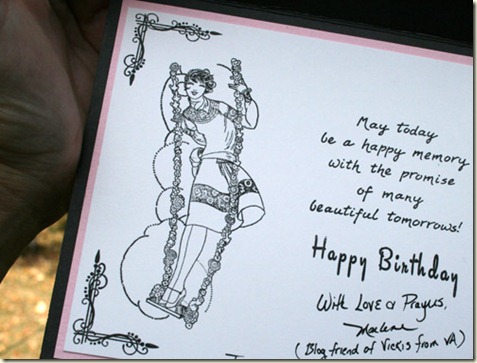 May today
be a happy memory
with the promise
of many
beautiful tomorrows!
Happy Birthday
With Love & Prayers,
Marlene
(Blog friend of Vickis from VA)